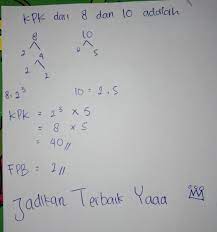 KPK dari 8 dan 10 adalah
8 10
2 4 2 5
2 2
8 = 2³ 10 = 2 . 5
KPK = 2³ × 5
= 8 × 5
= 40 //
FPB = 2 //
Jadikan Terbaik Yaaa